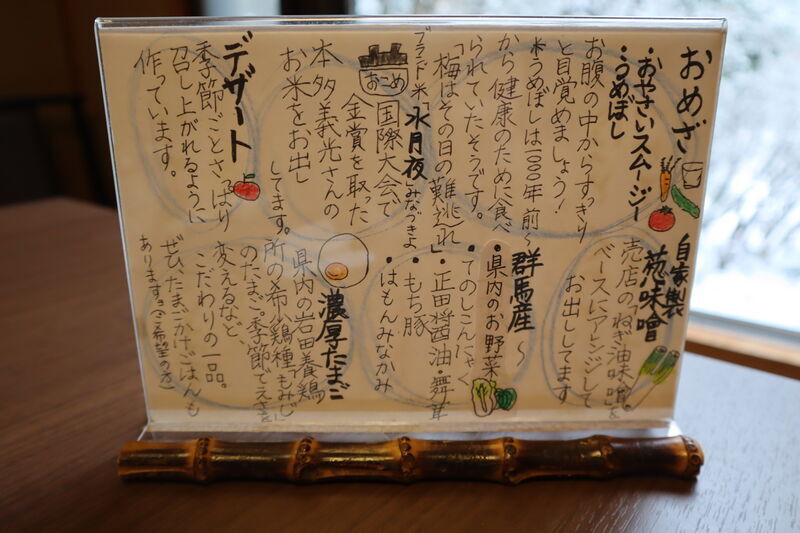 おめざ
・おやさいスムージー
・うめぼし
お腹の中からすっきり
と目覚めましょう!
*うめぼしは1000年前〜
から健康のために食べ
られていたそうです。
「梅はその日の難逃れ」
ブランド米「水月夜」みなづきよ
おこめ
国際大会で
金賞を取った
本多義光さんの
お米をお出し
してます。
デザート
季節ごとさっぱり
召し上がれるように
作っています。
自家製
葱味噌
売店の「ねぎ油味噌」を
ベースにアレンジして
お出ししてます
群馬産〜
・県内のお野菜
・てのしこんにゃく
・正田醤油・舞茸
・もち豚
・はもんみなかみ
濃厚たまご
県内の岩田養鶏
所の希少鶏種「もみじ」
のたまご。季節でえさを
変えるなど、
こだわりの一品。
ぜひ、たまごかけごはんも
あります。(ご希望の方)